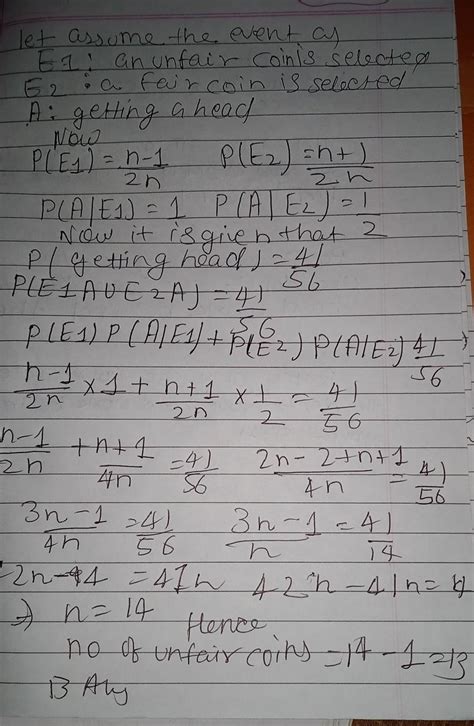 let assume the event as
E1: an unfair coin is selected
E2: a fair coin is selected
A: getting a head
Now
P(E1) = n-1/2n P(E2) = n+1/2n
P(A|E1) = 1 P(A|E2) = 1/2
Now it is given that
P(getting head) = 41/56
P(E1A∪E2A) = 41/56
P(E1)P(A|E1) + P(E2)P(A|E2) 41/56
n-1/2n × 1 + n+1/2n × 1/2 = 41/56
n-1/2n + n+1/4n = 41/56 2n-2+n+1/4n = 41/56
3n-1/4n = 41/56 3n-1/n = 41/14
2n-14 = 41n 42n-41n =
⇒ n = 14
Hence
no of unfair coins = 14 - 1 = 13
13 Ans